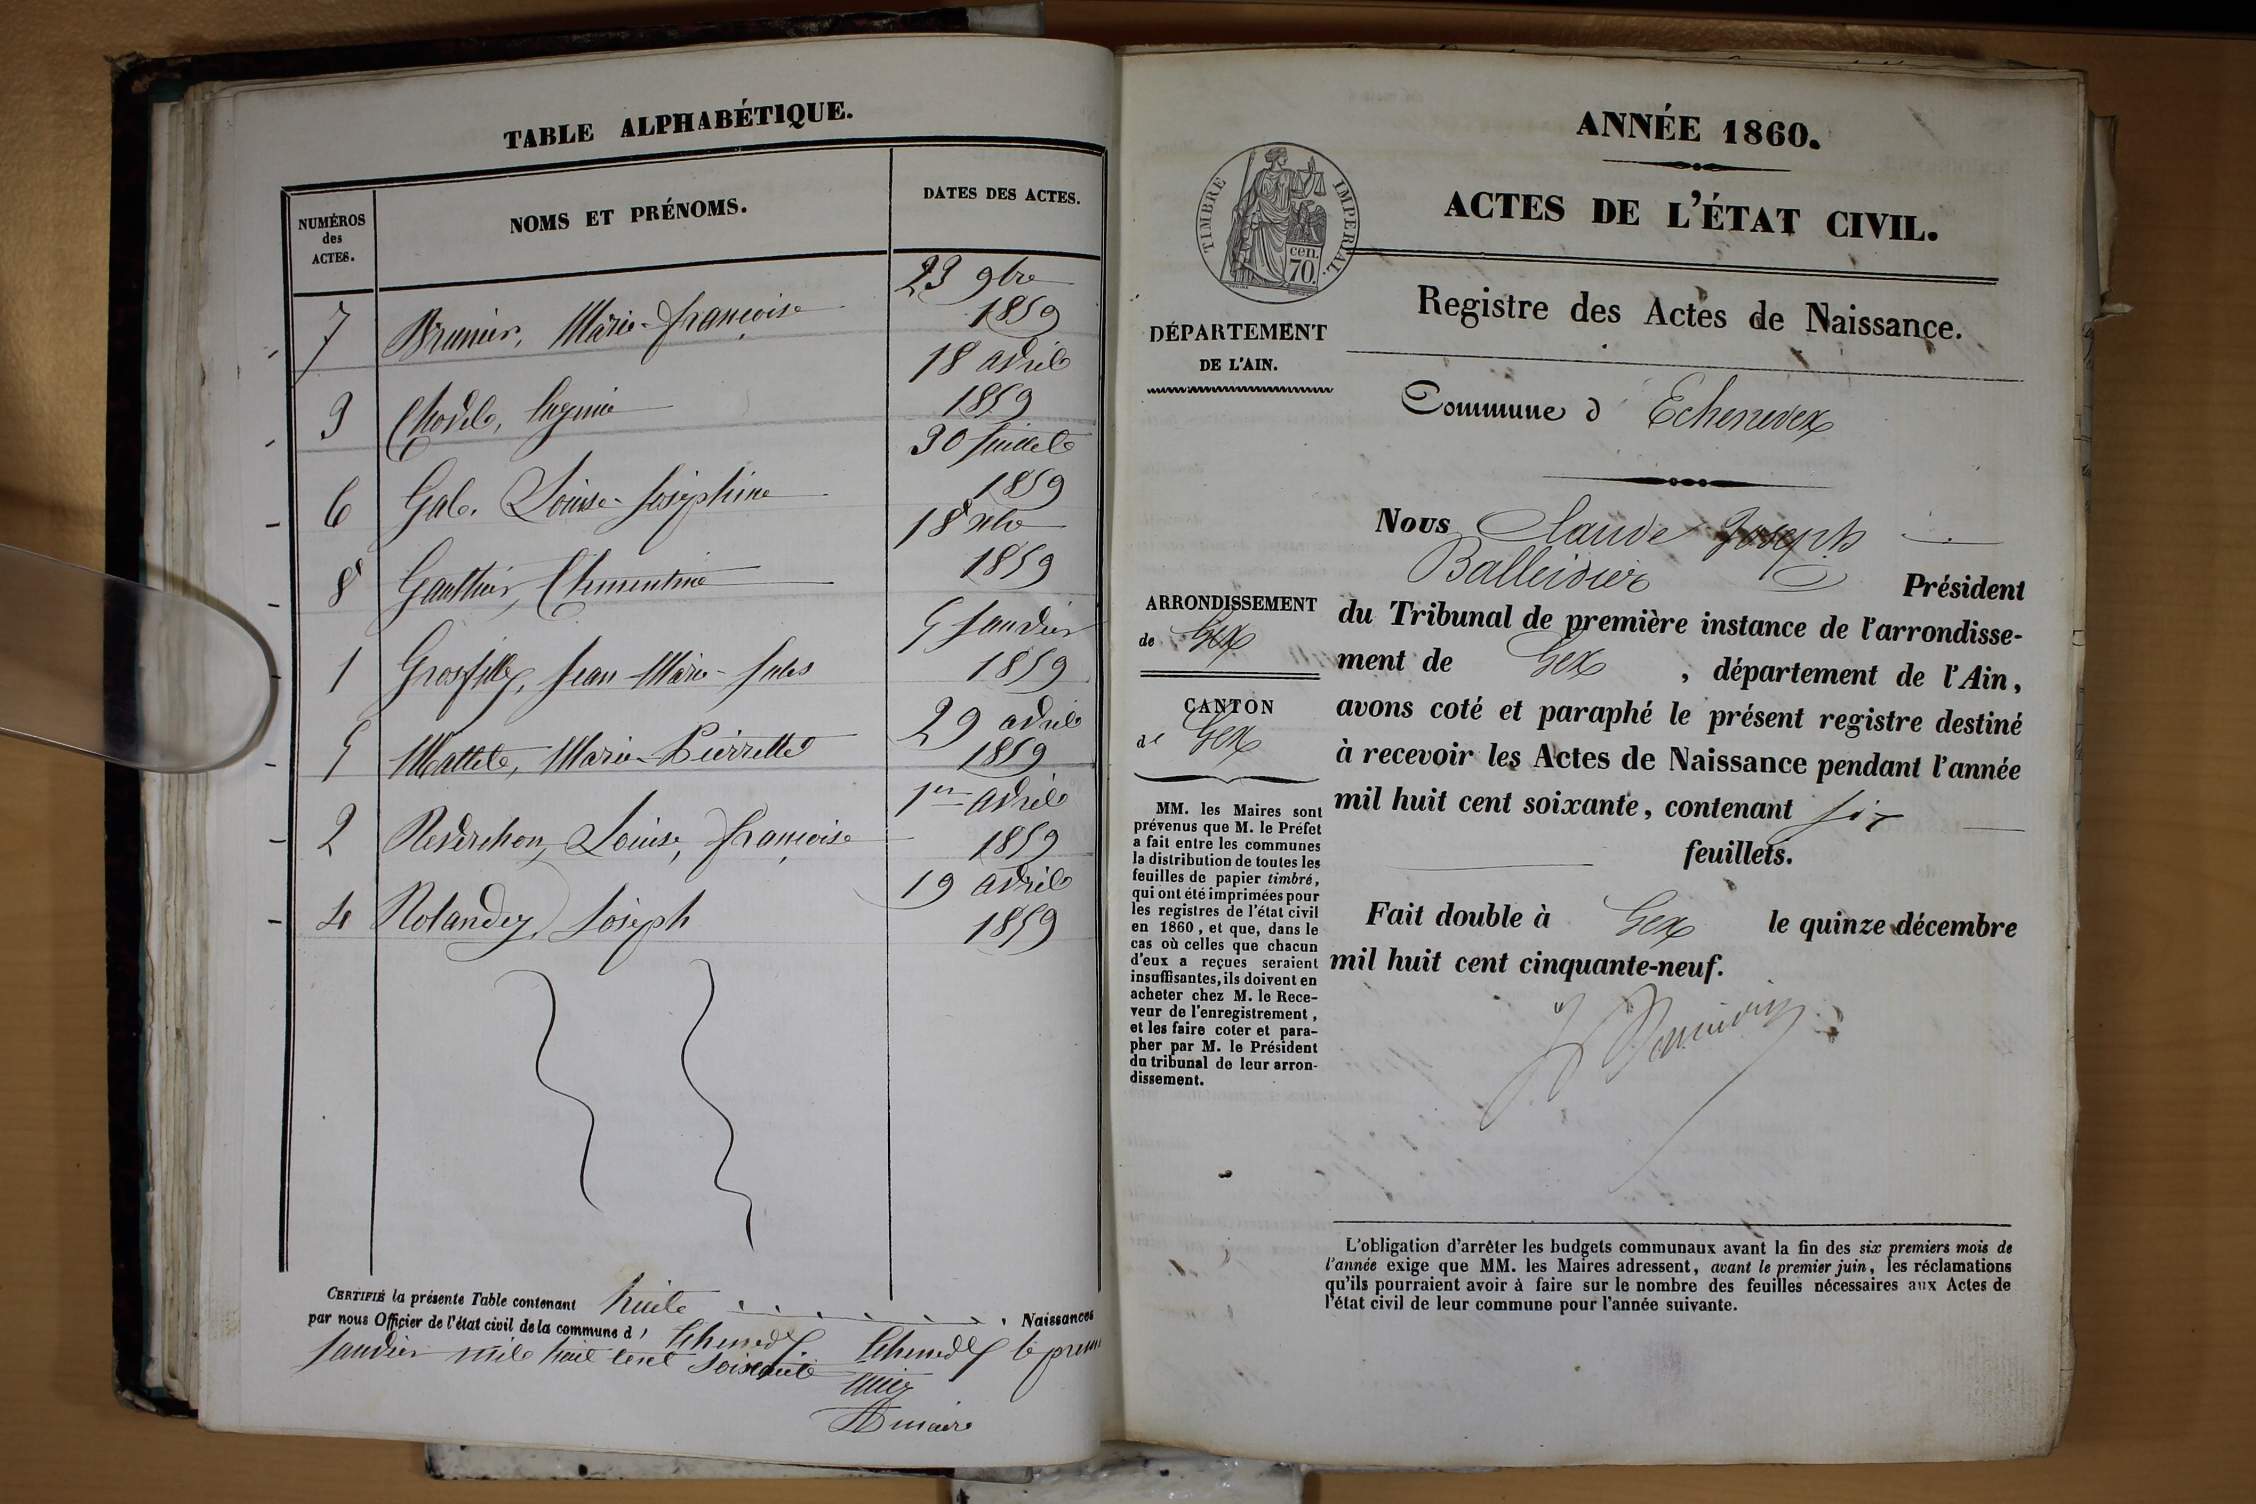 TABLE ALPHABÉTIQUE.
NUMÉROS
des
ACTES.
NOMS ET PRÉNOMS.
DATES DES ACTES.
7 Brunier, Marie-françoise 23 9bre
1859
3 Chodel, 18 avril
1859
6 Gal. Louise-Joséphine 30 Juillet
1859
8 Gauthier, Clementine 18 xbre
1859
1 Grosfilley, Jean-Marie-Jules 5 Janvier
1859
5 Mattet, Marie-Pierrette 29 avril
1859
2 Reverchon, Louise, françoise 1er avril
1859
4 Rolandez, Joseph 19 avril
1859
CERTIFIÉ la présente Table contenant huit Naissances
par nous Officier de l'état civil de la commune d'Echenevex. Echenevex le premier
Janvier mil huit cent soixante
maire
ANNÉE 1860.
ACTES DE L'ÉTAT CIVIL.
TIMBRE IMPÉRIAL.
cen.
70.
Registre des Actes de Naissance.
DÉPARTEMENT
DE L'AIN.
Commune d Echenevex
Nous Claude Joseph
Balleidier Président
du Tribunal de première instance de l'arrondisse-
ment de Gex, département de l'Ain,
avons coté et paraphé le présent registre destiné
à recevoir les Actes de Naissance pendant l'année
mil huit cent soixante, contenant six
feuillets.
Fait double à Gex le quinze décembre
mil huit cent cinquante-neuf.
ARRONDISSEMENT
de Gex
CANTON
de Gex
MM. les Maires sont
prévenus que M. le Préfet
a fait entre les communes
la distribution de toutes les
feuilles de papier timbré,
qui ont été imprimées pour
les registres de l'état civil
en 1860, et que, dans le
cas où celles que chacun
d'eux a reçues seraient
insuffisantes, ils doivent en
acheter chez M. le Rece-
veur de l'enregistrement,
et les faire coter et para-
pher par M. le Président
du tribunal de leur arron-
dissement.
L'obligation d'arrêter les budgets communaux avant la fin des six premiers mois de
l'année exige que MM. les Maires adressent, avant le premier juin, les réclamations
qu'ils pourraient avoir à faire sur le nombre des feuilles nécessaires aux Actes de
l'état civil de leur commune pour l'année suivante.